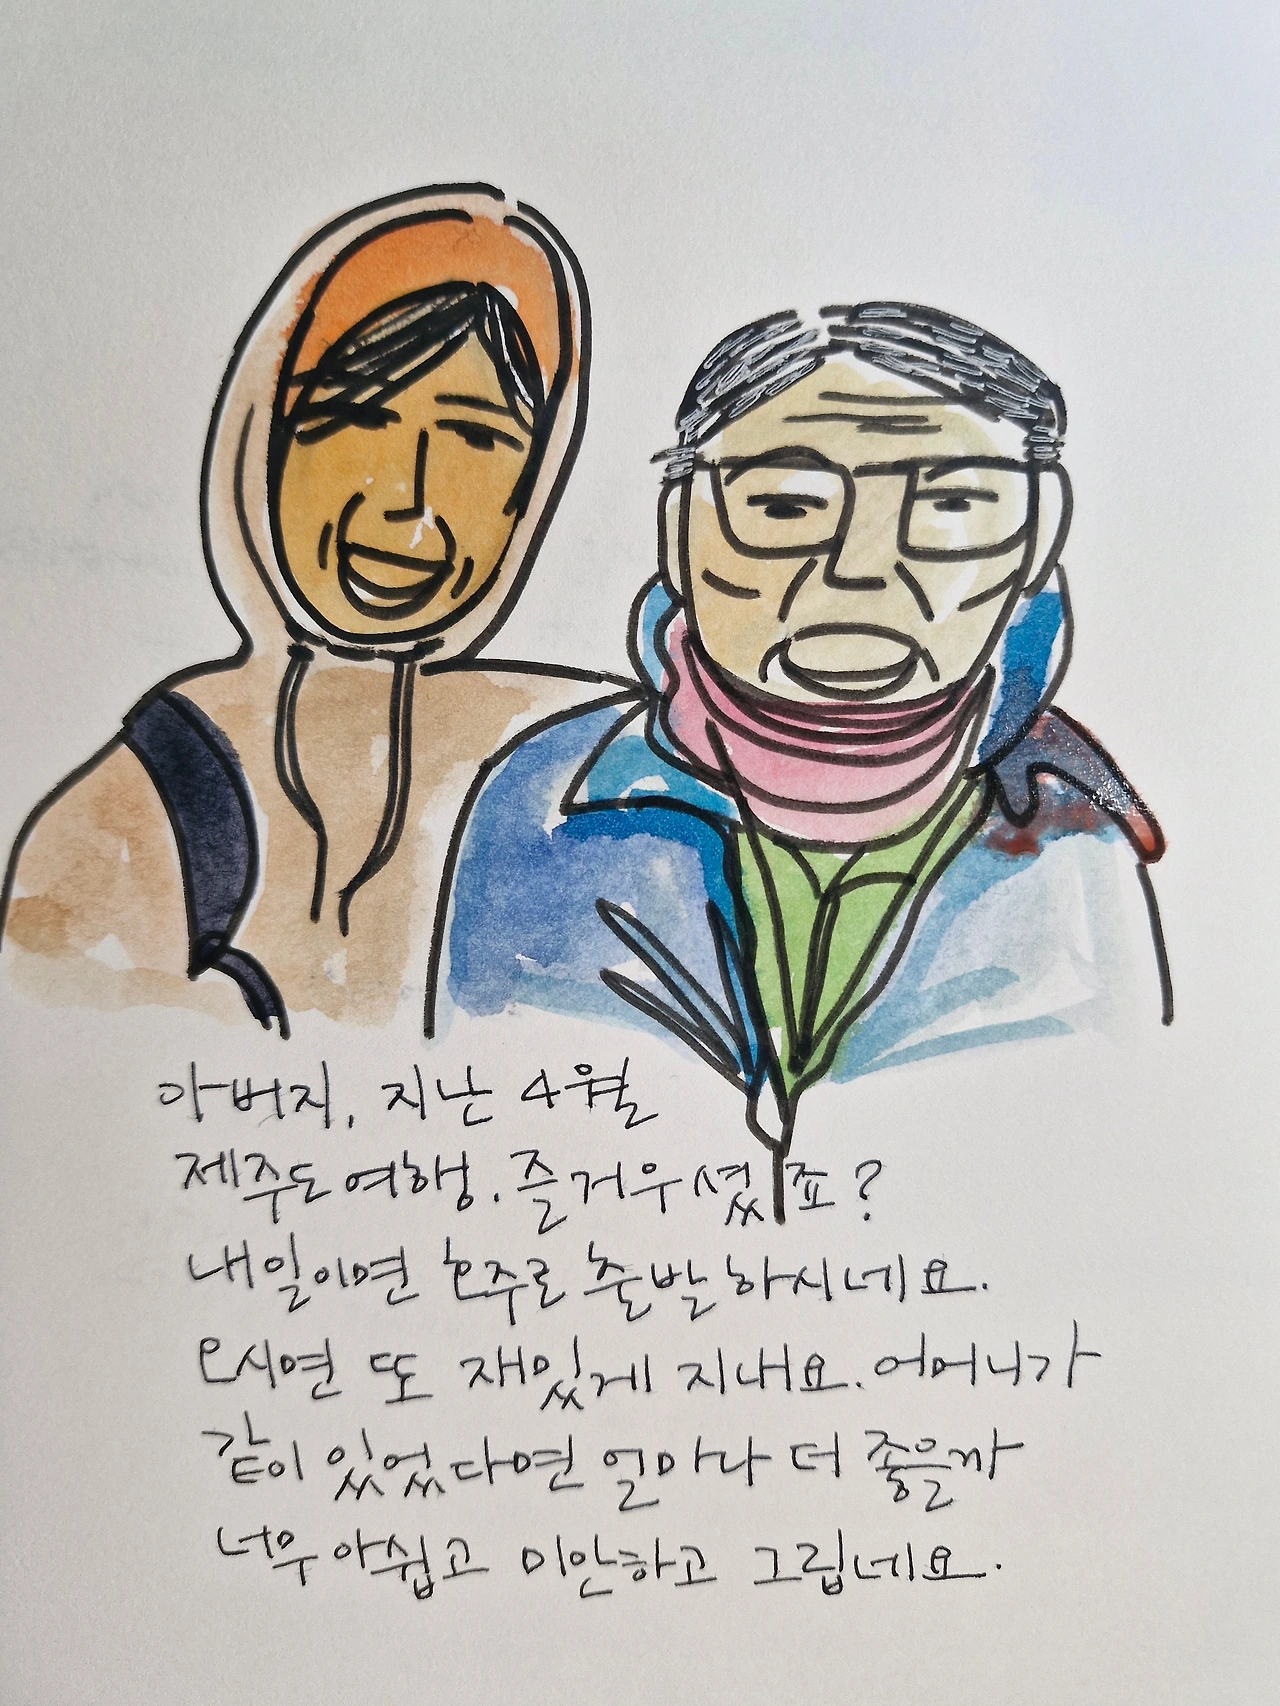 아버지, 지난 4월
제주도 여행. 즐거우셨죠?
내일이면 호주로 출발하시네요.
오시면 또 재밌게 지내요. 어머니가
같이 있었다면 얼마나 더 좋을까
너무 아쉽고 미안하고 그립네요.